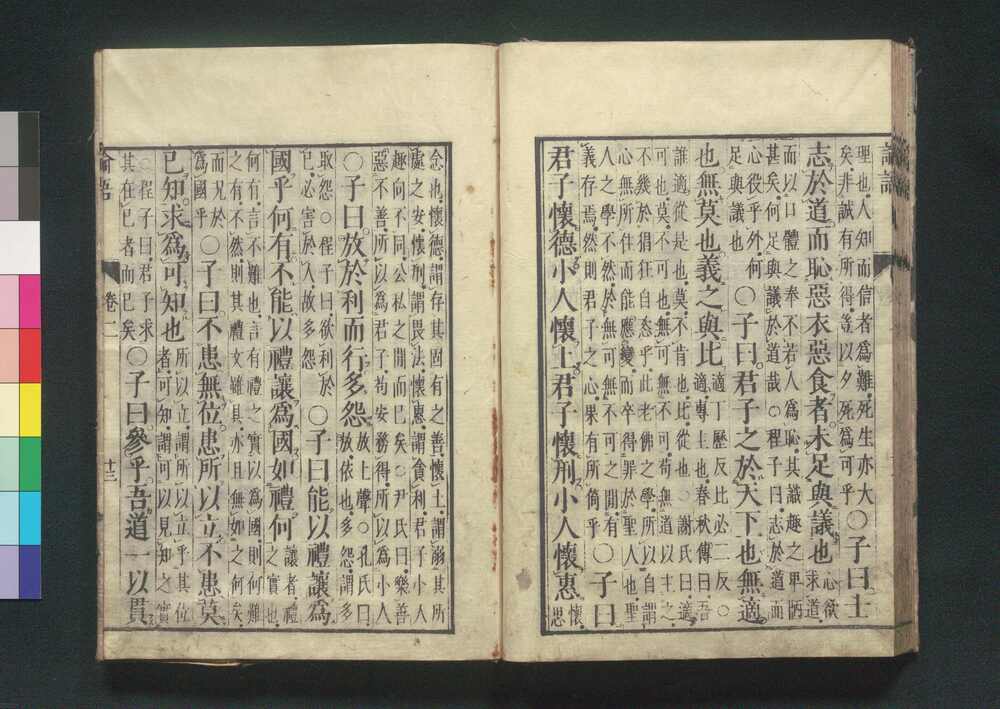 論語
理也人知而信者爲難死生亦大
矣非誠有所得豈以夕死爲可乎
○子曰士
志於道而恥惡衣惡食者未足與議也
心欲
求道
而以口體之奉不若人爲恥其識趣之卑陋
甚矣何足與議於道哉○程子曰志於道而
心役乎外何
足與議也
○子曰君子之於天下也無適
也無莫也義之與比
適丁歷反比必二反○
適專主也春秋傳曰吾
誰適從是也莫不肯也比從也○謝氏曰適
可也莫不可也無可無不可苟無道以主之
不幾於猖狂自恣乎此老佛之學所以自謂
心無所住而能應變而卒得罪於聖人也聖
人之學不然於無可無不可之閒有
義存焉然則君子之心果有所倚乎
○子曰
君子懷德小人懷土君子懷刑小人懷惠
懷
思
念也懷德謂存其固有之善懷土謂溺其所
處之安懷刑謂畏法懷惠謂貪利君子小人
趣向不同公私之閒而已矣○尹氏曰樂善
惡不善所以爲君子苟安務得所以爲小人
○子曰放於利而行多怨
放上聲○孔氏曰
放依也多怨謂多
取怨○程子曰欲利於
已必害於人故多怨
○子曰能以禮讓爲
國乎何有不能以禮讓爲國如禮何
讓者禮
之實也
何有言不難也言有禮之實以爲國則何難
之有不然則其禮文雖具亦且無如之何矣
而況於
爲國乎
○子曰不患無位患所以立不患莫
已知求爲可知也
所以立謂所以立乎其位
者可知謂可以見知之實
○程子曰君子求
其在已者而已矣
○子曰參乎吾道一以貫
論語
卷二
十三